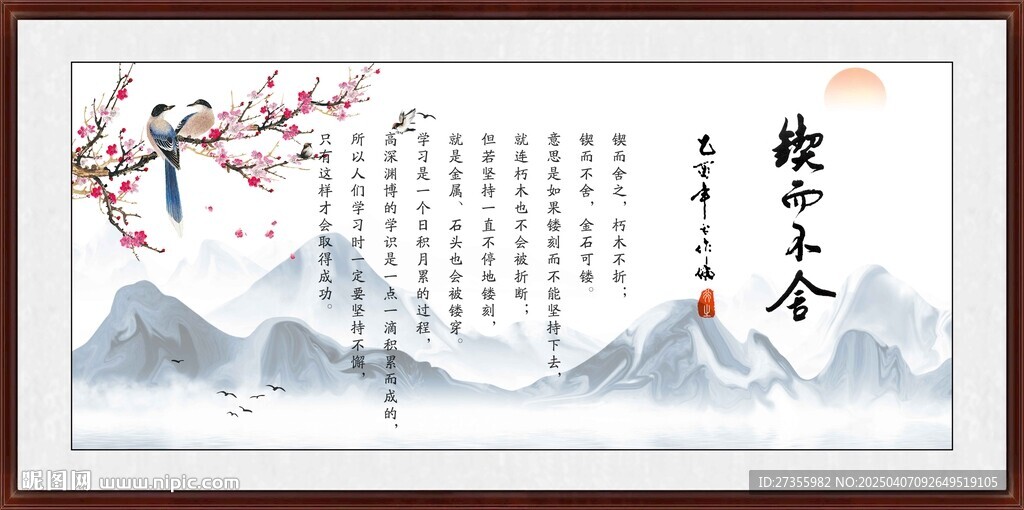 锲而不舍
乙酉年
锲而舍之，朽木不折；
锲而不舍，金石可镂。
意思是如果镂刻而不能坚持下去，
就连朽木也不会被折断；
但若坚持一直不停地镂刻，
就是金属、石头也会被镂穿。
学习是一个日积月累的过程，
高深渊博的学识是一点一滴积累而成的，
所以人们学习时一定要坚持不懈，
只有这样才会取得成功。
昵图网 www.nipic.com
ID:27355982 NO:20250407092649519105